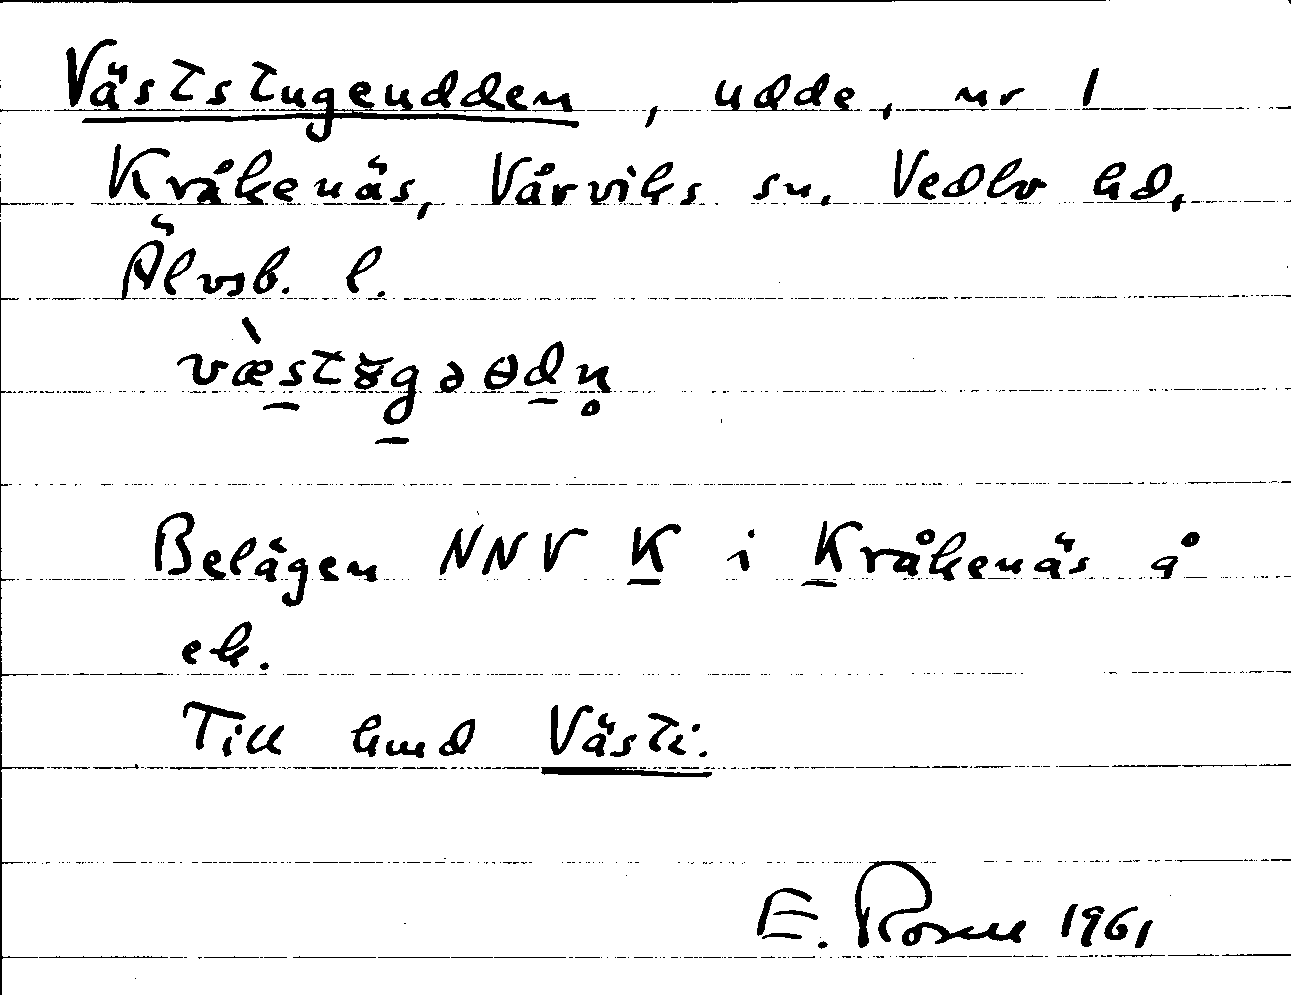 Väststugeudden, udde, nr 1
Kråkenäs, Vårviks sn. Vedbo hd,
Älvsb. l.
Belägen NNV K i Kråkenäs å
ek.
Till hmd Västi.
E. Rosell 1961